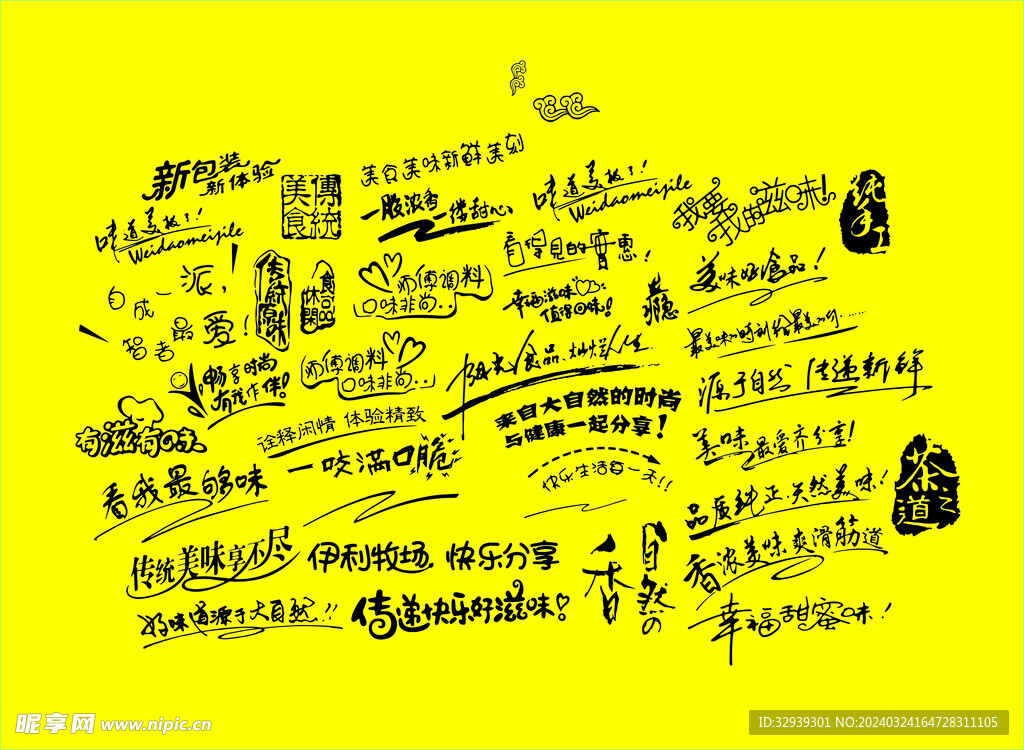 新包装
新体验
美食
傳統
美食美味新鲜美刻
一股浓香
一缕甜心
味道美极了!
Weidaomeijile
我要
我的滋味!
纯手工
味道美极了!
Weidaomeijile
看得见的實惠!
自成一派,
智者最爱!
传统原味
食品
休閑
师傅调料
口味非尚..
幸福滋味
值得回味!
瘾
美味好食品!
最美味的時刻給最美的你......
畅享时尚
有我作伴!
师傅调料
口味非尚..
阳光食品、灿烂人生
源于自然 传递新鲜
来自大自然的时尚
与健康一起分享!
有滋有味
诠释闲情 体验精致
一咬满口脆
美味最爱齐分享!
快乐生活每一天!!
看我最够味
品质纯正、天然美味!
茶之道
传统美味享不尽
伊利牧场,快乐分享
香
自然の
香浓美味爽滑筋道
好味道源于大自然!!
传递快乐好滋味!
幸福甜蜜味!
昵享网 www.nipic.cn
ID:32939301 NO:20240324164728311105